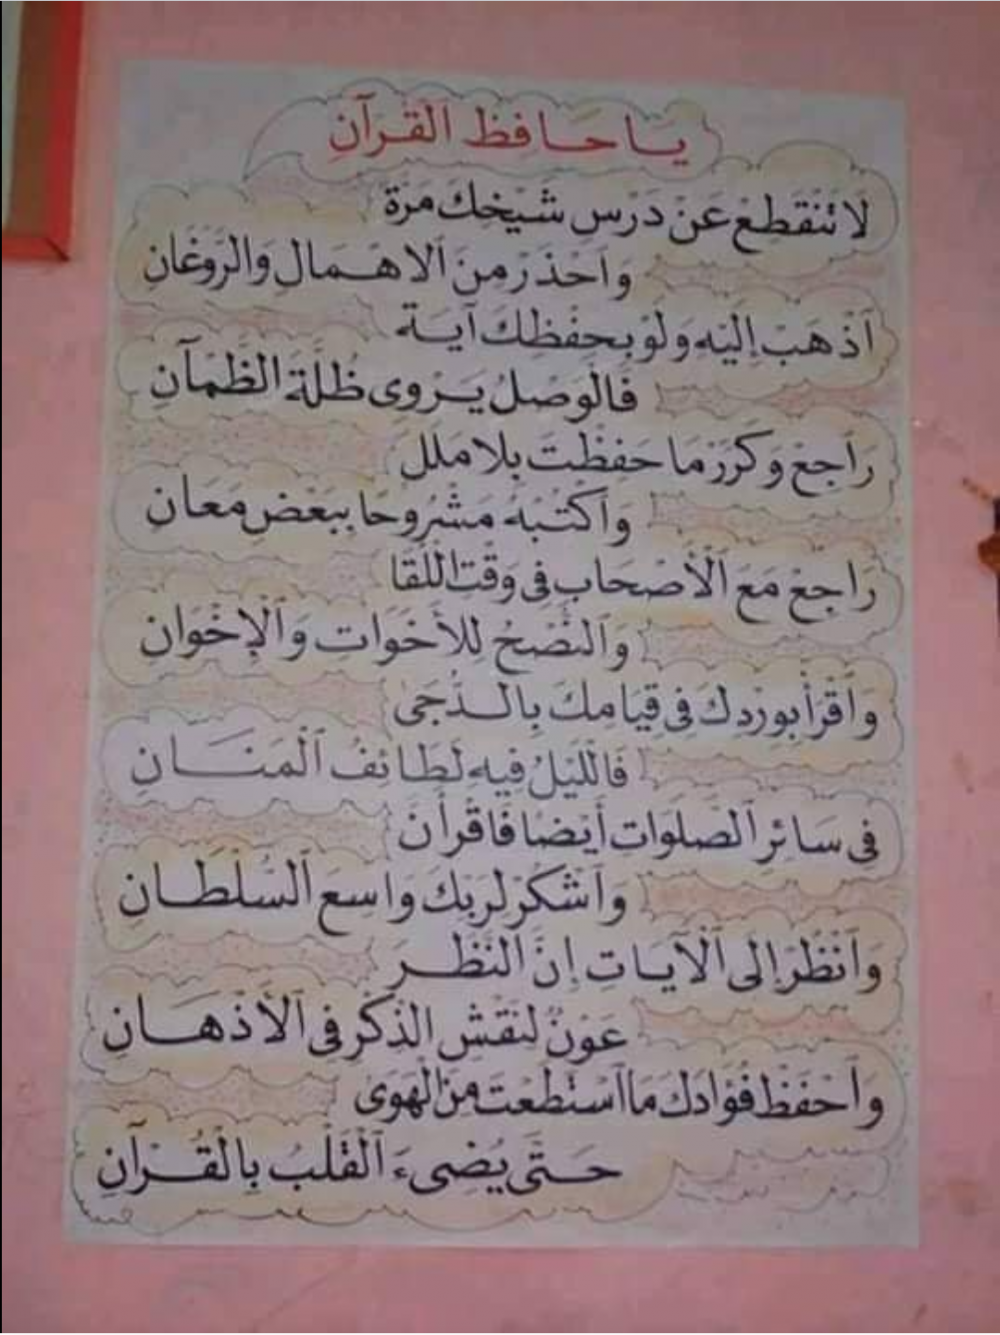 يا حافظ القرآن
لا تنقطع عن درس شيخك مرة
وأحذر من الاهمال والروغان
أذهب إليه ولو بحفظك آية
فالوصل يروى ظلة الظمآن
راجع وكرر ما حفظت بلا ملل
واكتبه مشروحا ببعض معان
راجع مع الأصحاب فى وقت اللقا
والنصح للأخوات والإخوان
وأقرأ بوردك فى قيامك بالدجى
فالليل فيه لطائف المنان
فى سائر الصلوات أيضا فاقرأن
وأشكر لربك واسع السلطان
وأنظر إلى الآيات إن النظر
عون لنقش الذكر فى الأذهان
وأحفظ فؤادك ما استطعت من الهوى
حتى يضىء القلب بالقرآن